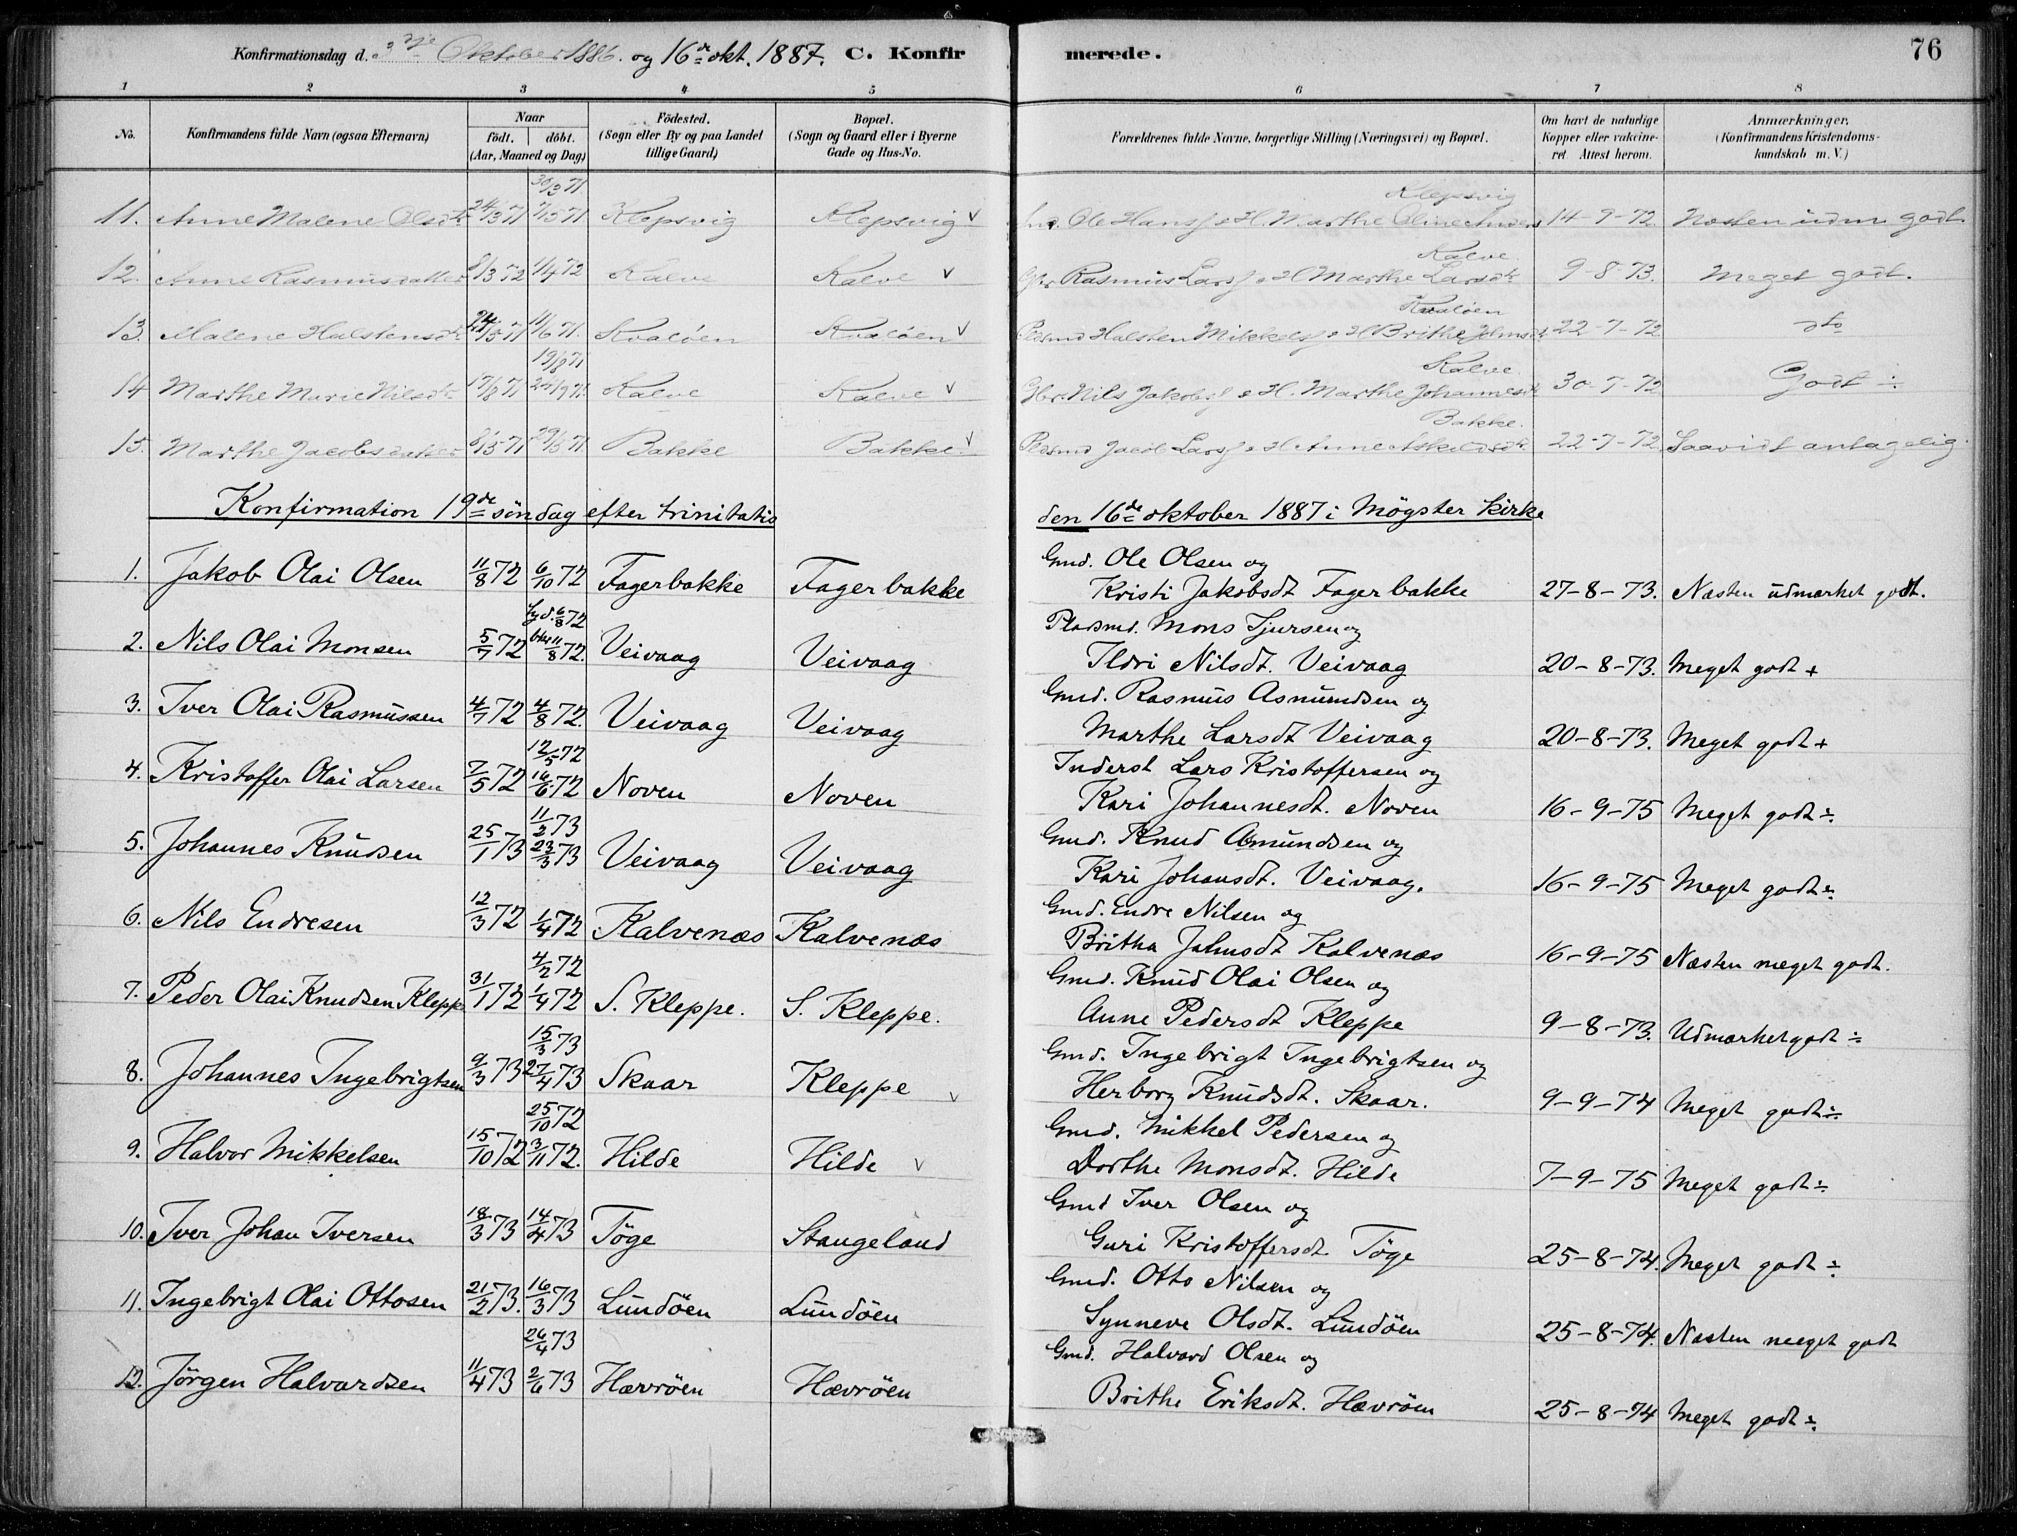 Konfirmationsdag d. 3die Oktober 1886. og 16de okt. 1887. C. Konfirmerede. 76
1 2 3 4 5 6 7 8
No. Konfirmandens fulde Navn (ogsaa Efternavn) Naar födt. döbt. (Aar, Maaned og Dag) Födested. (Sogn eller By og paa Landet tillige Gaard) Bopæl. (Sogn og Gaard eller i Byerne Gade og Hus-No. Forældrenes fulde Navne, borgerlige Stilling (Næringsvei) og Bopæl. Om havt de naturlige Kopper eller vaccineret. Attest herom. Anmærkninger. (Konfirmandens Kristendomskundskab m. V.)
30/3 71 Klepsvig
11. Anne Malene Olsdtr 24/3 71 7/5 71 Klepsvig Klepsvig v Ole Hans. & H. Marthe Oline 14-9-72 Næsten udm. godt.
Kalve.
12. Anne Rasmusdatter 8/3 72 1/4 72 Kalve Kalve v Gbr. Rasmus Lars. & H Marthe Larsdtr 9-8-73. Meget godt.
Kvaløen
13. Malene Halstensdtr 24/5 71 11/6 71. Kvaløen Kvaløen v Halsten Mikkels. & H Brithe Johnsdtr 22-7-72 dto
19/8 71 Kalve.
14 Marthe Marie Nilsdtr 17/8 71 24/9 71 Kalve Kalve v Gbr. Nils Jakobs. & H. Marthe Johannesdtr 30-7-72 Godt ÷
Bakke.
15. Marthe Jacobsdatter 8/5 71 29/5 71 Bakke Bakke. v Jacob Lars. & H Anne Askeldsdtr. 22-7-72 Saavidt antagelig.
Konfirmation 19de söndag efter trinitatis den 16de oktober 1887 i Mögster Kirke
Gmd. Ole Olsen og
1. Jakob Olai Olsen 11/8 72 6/10 72 Fagerbakke Fagerbakke Kristi Jakobsdt Fagerbakke 27-8-73. Næsten udmærket godt.
6/8 72 Pladsmd. Mons Sjursen og
2. Nils Olai Monsen 5/7 72 11/8 72. Veivaag Veivaag Ildri Nilsdt. Veivaag 20-8-73. Meget godt +
Gmd. Rasmus Asmundsen og
3. Iver Olai Rasmussen 4/7 72 4/8 72. Veivaag Veivaag Marthe Larsdt Veivaag 20-8-73. Meget godt +
12/5 72 Inderst Lars Kristoffersen og
4. Kristoffer Olai Larsen 7/5 72 16/6 72 Noven Noven Kari Johannesdt. Noven 16-9-75 Meget godt ÷
11/2 73 Gmd. Knud Asmundsen og
5. Johannes Knudsen 25/1 73 23/3 73 Veivaag Veivaag Kari Johansdt. Veivaag. 16-9-75 Meget godt ÷
Gmd. Endre Nilsen og
6. Nils Endresen 12/3 72 1/4 72 Kalvenæs Kalvenæs Britha Johnsdt Kalvenæs 16-9-75 Næsten meget godt.
4/2 72 Gmd. Knud Olai Olsen og
7. Peder Olai Knudsen Kleppe 31/1 72 1/4 72 S. Kleppe. S. Kleppe. Anne Pedersdt Kleppe 9-8-73. Udmærket godt ÷
15/3 73 Gmd. Ingebrigt Ingebrigtsen og
8. Johannes Ingebrigtsen 9/3 73 27/4 73 Skaar Kleppe v Herborg Knudsdt. Skaar. 9-9-74 Meget godt ÷
25/10 72 Gmd. Mikkel Pedersen og
9. Halvor Mikkelsen 15/10 72 3/11 72. Hilde Hilde v Dorthe Monsdt. Hilde 7-9-75 Meget godt ÷
Gmd Iver Olsen og
10. Iver Johan Iversen 18/3 73 14/4 73 Töge Stangeland Guri Kristoffersdt. Töge 25-8-74. Meget godt ÷
Gmd. Otto Nilsen og
11. Ingebrigt Olai Ottosen 21/2 73. 16/3 73 Lundöen Lundöen Synneve Olsdt. Lundöen 25-8-74. Næsten meget godt
26/4 73 Gmd. Halvard Olsen og
12. Jörgen Halvardsen 11/4 73 2/6 73 Hævröen Hævröen Brithe Eriksdt. Hævröen 25-8-74 Meget godt ÷